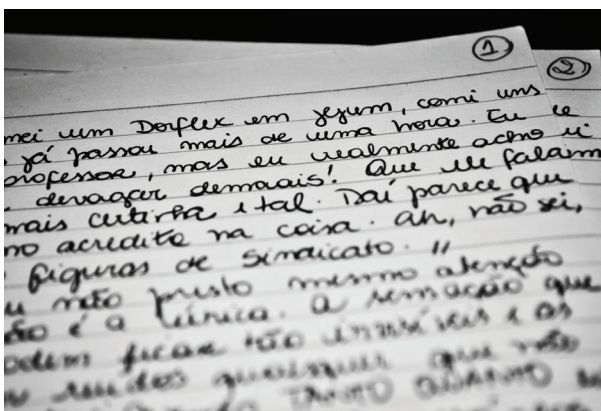 1
2
mei um Dorflex em jejum, comi uns
já passou mais de uma hora. Eu
professor, mas eu realmente acho
devagar demais! Que me falam
mais curtinha e tal. Daí parece que
no acredita na coisa. Ah, não sei,
figuras de sindicato. "
u não presto mesmo atenção
ão é a única. A sensação que
odem ficar tão e os
ruídos quaisquer que não
TANTO QUANTO